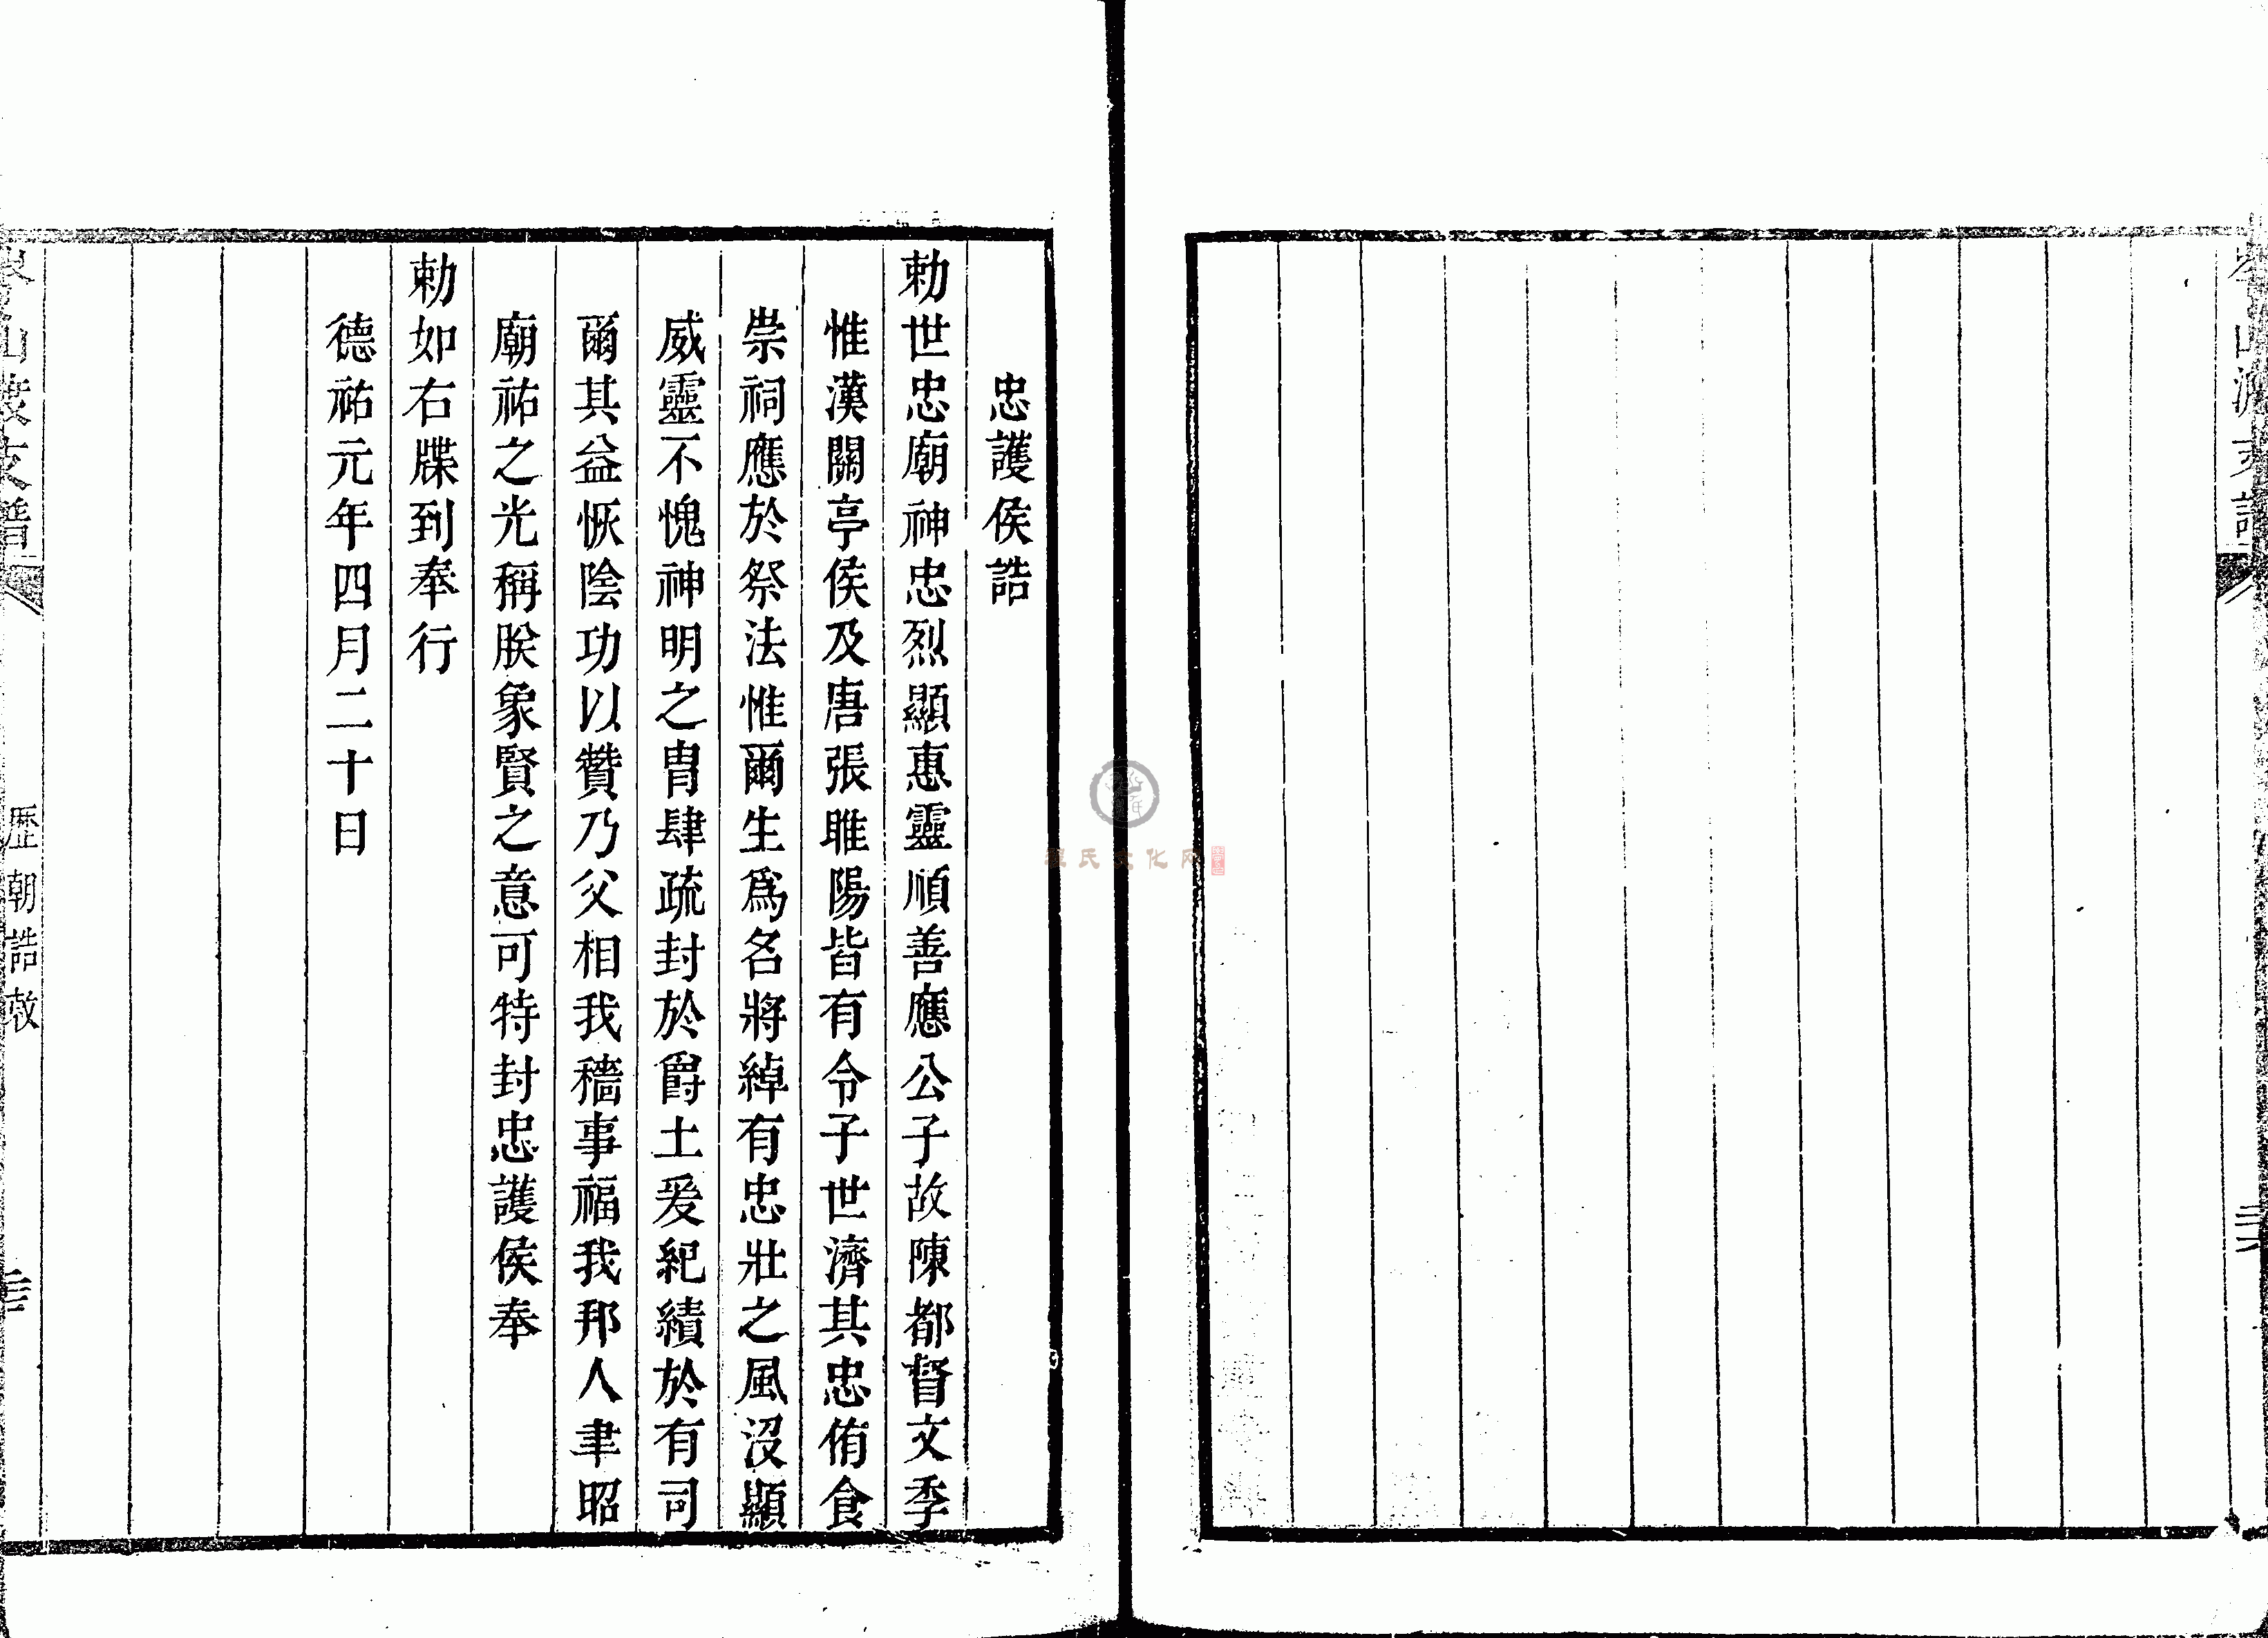 忠護侯誥
勅世忠廟神忠烈顯惠靈順善應公子故陳都督文季
惟漢關亭侯及唐張睢陽皆有令子世濟其忠侑食
崇祠應於祭法惟爾生爲名將綽有忠壯之風沒顯
威靈不愧神明之胄肆疏封於爵土爰紀績於有司
爾其益恢陰功以贊乃父相我穡事福我邦人聿昭
廟祐之光稱朕象賢之意可特封忠護侯奉
勅如右牒到奉行
德祐元年四月二十日
山渡支譜
歷朝誥敕
氏文化网